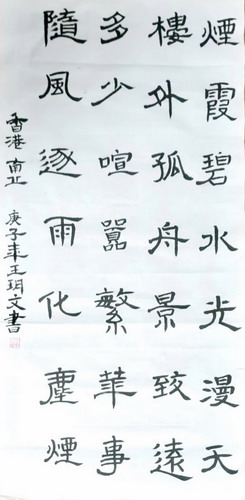 煙霞碧水光漫天
樓外孤舟景致遠
多少喧囂繁華事
隨風逐雨化塵煙
香港南北 庚子年王玥文書